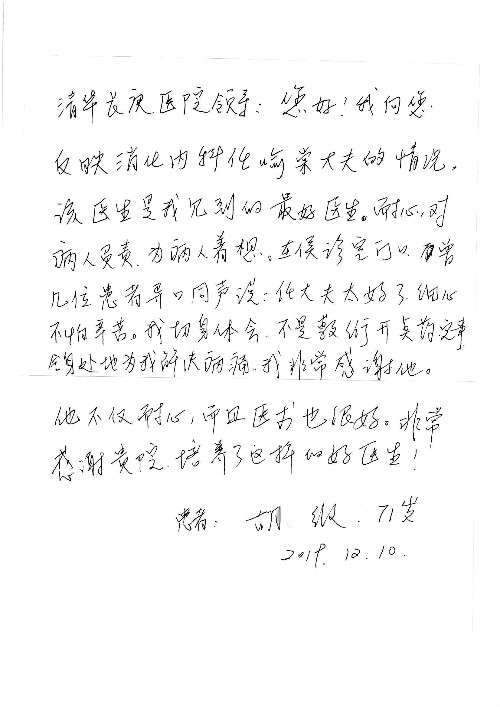 清华长庚医院领导：您好！我向您
反映消化内科任渝棠大夫的情况。
该医生是我见到的最好医生。耐心，对
病人负责，为病人着想。在候诊室门口
几位患者异口同声说：任大夫太好了，细心
不怕辛苦。我切身体会，不是敷衍开点药完事
设身处地为我解决病痛，我非常感谢他。
他不仅耐心，而且医术也很好。非常
感谢贵院，培养了这样的好医生！
患者：胡 71岁
2019.12.10.